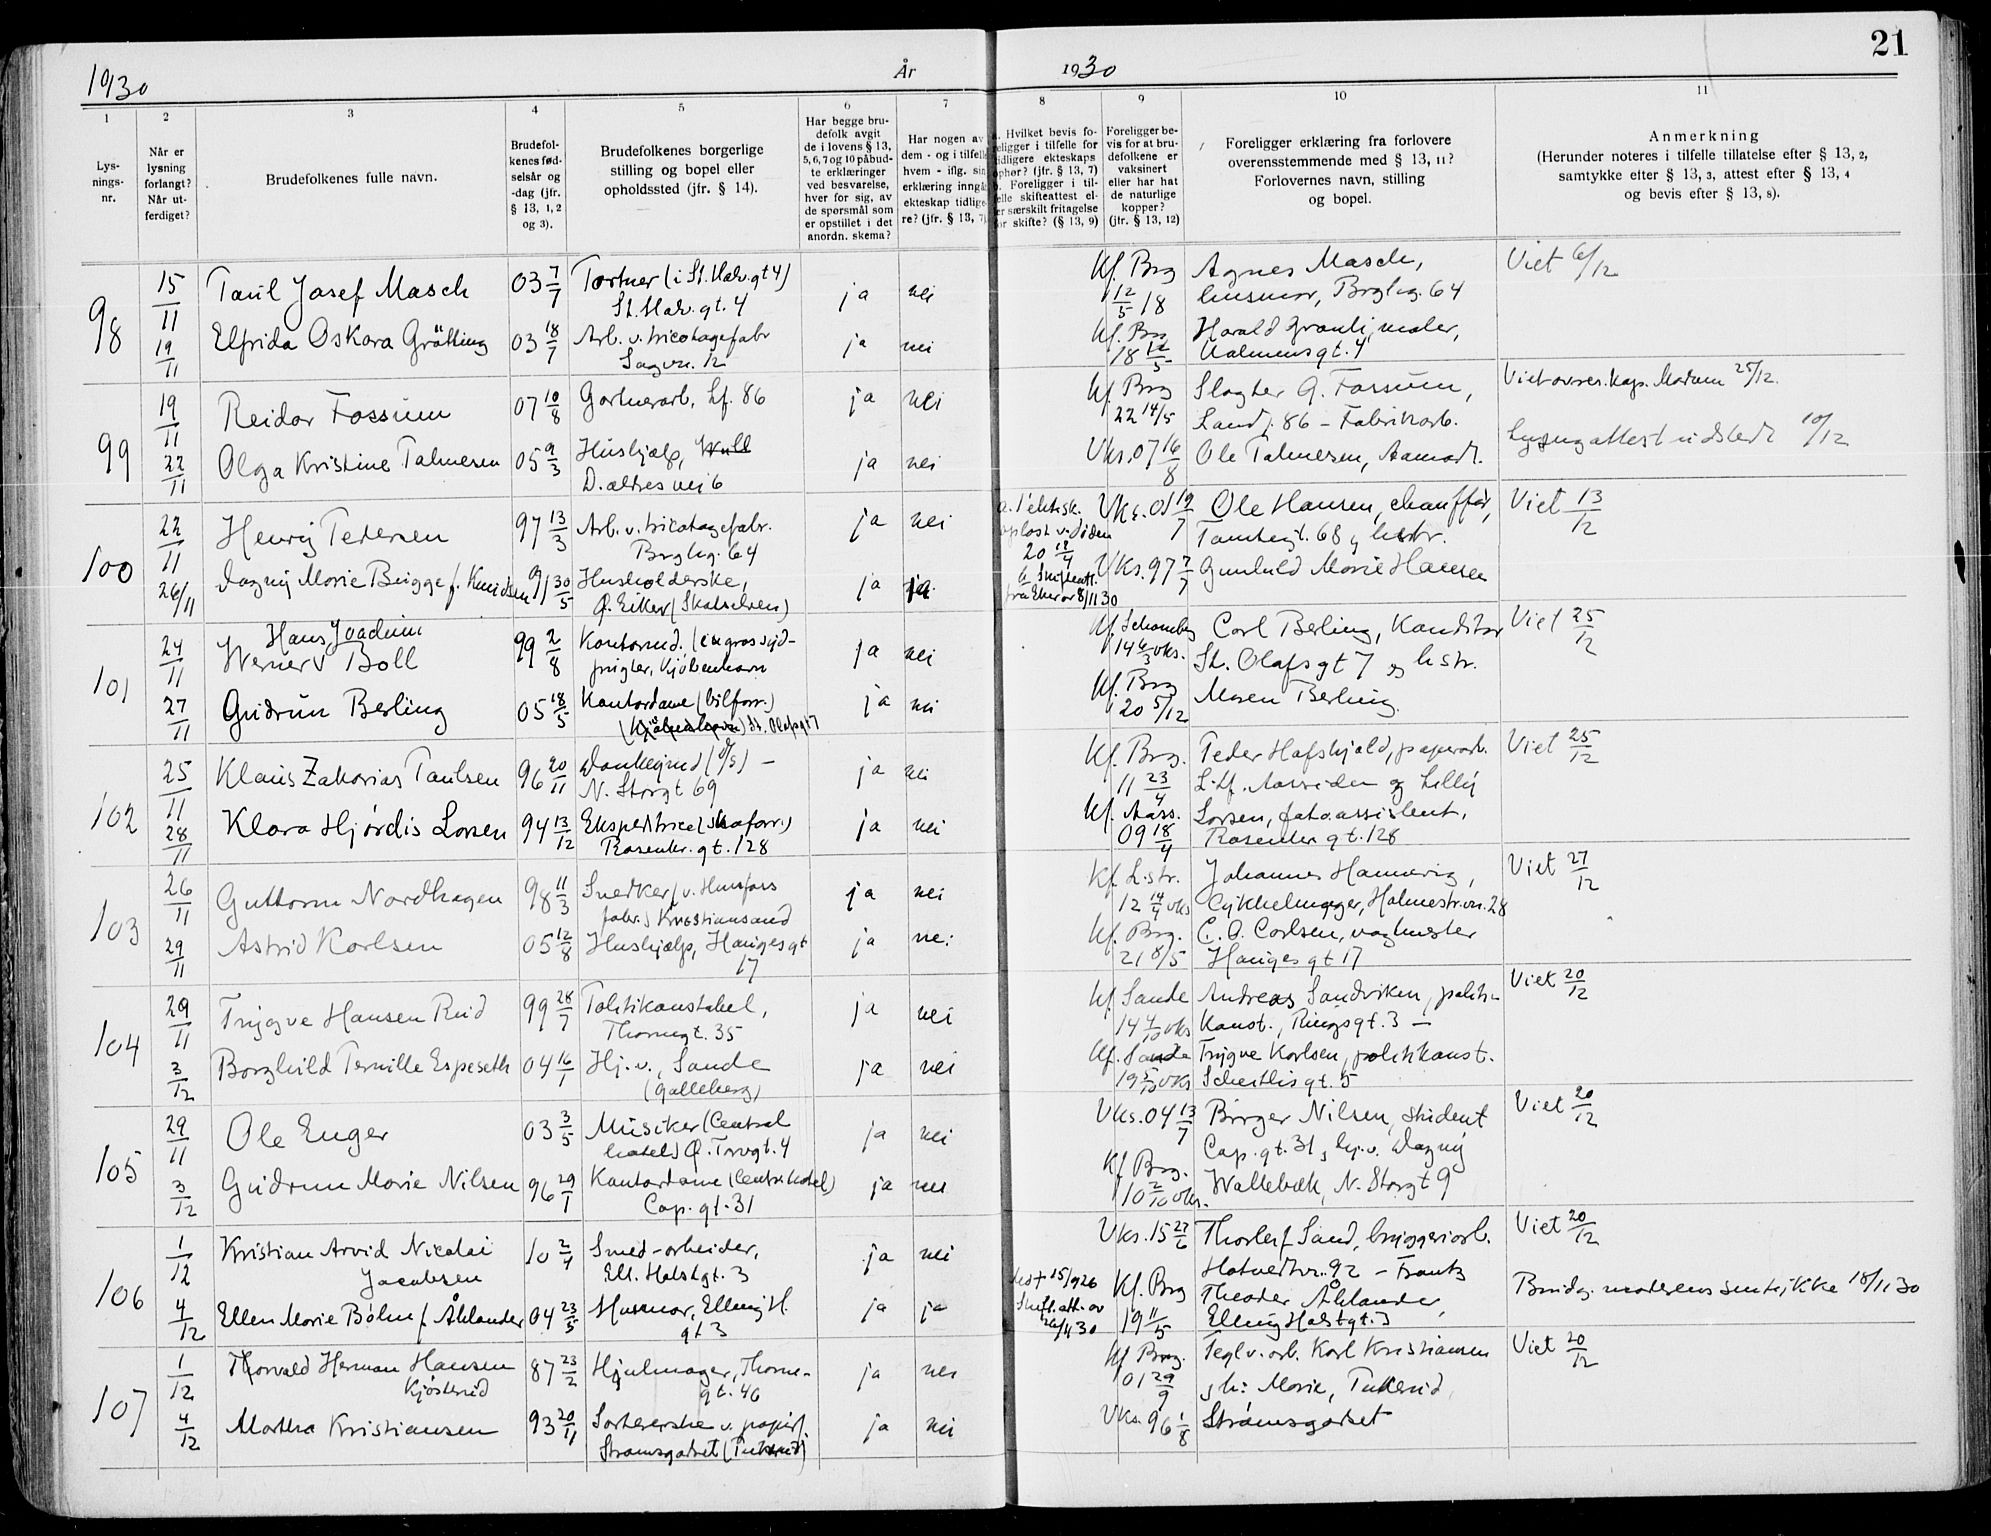 21
1930 År 1930
1 2 3 4 5 6 7 8 9 10 11
Lysningsnr.
Når er lysning forlangt? Når utferdiget?
Brudefolkenes fulle navn.
Brudefolkenes fødselsår og -dag (jfr. § 13, 1, 2 og 3).
Brudefolkenes borgerlige stilling og bopel eller opholdssted (jfr. § 14).
Har begge brudefolk avgit de i lovens § 13, 5, 6, 7 og 10 påbudte erklæringer ved besvarelse, hver for sig, av de spørsmål som er opstillet i det anordn. skema?
Har nogen av dem - og i tilfelle hvem - iflg. sin erklæring inngått ekteskap tidligere? (jfr. § 13, 7)
Hvilket bevis foreligger i tilfelle for tidligere ekteskaps ophør? (jfr. § 13, 7) b. Foreligger i tilfelle skifteattest eller særskilt fritagelse for skifte? (§ 13, 9)
Foreligger bevis for at brudefolkene er vaksinert eller har hat de naturlige kopper? (jfr. § 13, 12)
Foreligger erklæring fra forlovere overensstemmende med § 13, 11? Forlovernes navn, stilling og bopel.
Anmerkning (Herunder noteres i tilfelle tillatelse efter § 13, 2, samtykke efter § 13, 3, attest efter § 13, 4 og bevis efter § 13, 8).
98
15/11 Paul Josef Masch 03 7/7 Portner (i St. Halv. gt 4) St. Halv. gt. 4 ja nei Kf. Brg 12/5 18 Agnes Masch, husmor, Brglvg. 64 Viet 6/12
19/11 Elfrida Oskara Grötting 03 18/7 Arb. v. tricotagefabr Sagvn. 12 ja nei Kf. Brg 18 12/5 Harald Granli, maler, Halmensgt. 4
99
19/11 Reidar Fossum 07 10/8 Gartnerarb. Lf. 86 ja nei Kf. Brg 22 14/5 Slagter G. Fossum, Landf. 86 - Fabrikarb. Viet overs. kap. Modum 25/12.
22/11 Olga Kristine Palmesen 05 9/3 Hushjælp, D. ældres vei 6 ja nei Vks. 07 16/8 Ole Palmesen, Aamodt. Lysngattest utstedt 10/12
100
22/11 Henry Pedersen 97 13/3 Arb. v. tricotagefabr. Brglvg. 64 ja nei Vks. 01 19/7 Ole Hansen, chauffør, Tomtegt. 68 og hustr. Viet 13/12
26/11 Dagny Marie Brigge f. Knudsen 91 30/5 Husholderske, Ø. Eiker (Skotselven) ja ja a. 1' ektesk. opløst v. døden 20 12/4 b. Skifteatt. fra Eker av 8/11 30 Vks. 97 7/7 Gunhild Marie Hansen
101
24/11 Hans Joachim Werner Boll 99 2/8 Kontormd. (en gros sydfrugter, Kjøbenhavn ja nei Kf. Schomberg 14 6/3 vks. Carl Berling, Konditor St. Olafsgt 7 og hstr. Viet 25/12
27/11 Gudrun Berling 05 18/5 Kontordame (bilforr.) (Kjøbenhavn) St. Olafsgt 7 ja nei Kf. Brg 20 5/12 Maren Berling.
102
25/11 Klaus Zakarias Paulsen 96 20/11 N. Storgt 69 ja nei Kf. Brg. 11 23/4 Peder Hafskjold, paperarb. L. Lf. Aassiden og Lilly Viet 25/12
28/11 Klara Hjørdis Larsen 94 13/12 Ekspeditrice (skoforr.) Rosenkr. gt. 128 ja nei Kf. Aass. 09 18/4 Larsen, fotoassistent, Rosenkr gt. 128
103
26/11 Guttorm Nordhagen 98 11/3 Snedker (v. Hunsfoss fabr.) Kristiansand ja nei Kf L.str. 12 14/4 vks Johannes Hammerig, Cykkelmager, Holmestr.vn. 28 Viet 27/12
29/11 Astrid Karlsen 05 12/8 Hushjælp, Haugesgt 17 ja nei Kf. Brg. 21 8/5 C. A. Carlsen, vagtmester Haugesgt 17
104
29/11 Trygve Hansen Rud 99 28/7 Politikonstabel, Thornegt. 35 ja nei Kf Sande 14 4/10 vks Andreas Sandviken, politikonst., Ringsgt. 3 — Viet 20/12
3/12 Borghild Pernille Espeseth 04 16/1 Hj. v., Sande (Galleberg) ja nei Kf. Sande 19 5/10 vks Trygve Karlsen, politikonst. Scheitlisgt. 5
105
29/11 Ole Enger 03 3/5 Musiker (Central hotel) Ø. Torvgt. 4 ja nei Vks. 04 13/7 Birger Nilsen, student Cap. gt. 31, hj. v. Dagny Viet 20/12
3/12 Gudrun Marie Nilsen 96 29/1 Kontordame (Centr. hotel) Cap. gt. 31 ja nei Kf Brg. 10 2/10 vks. Wallebæk, N. Storgt 9
106
1/12 Kristian Arvid Nicolai Jacobsen 10 2/4 Smed-arbeider, Ell. Holstgt. 3 ja nei Vks. 15 27/6 Thorleif Sand, bryggeriarb. Hotvedtvn. 92 - Frantz Viet 20/12
4/12 Ellen Marie Bøhm f. Åhlander 04 23/5 Husmor, Elling H. gt 3 ja ja + 15/9 26 Skift. att. av 26/11 30 Kf. Brg 19 11/5 Theodor Åhlander, Elling Holstgt. 3 Brudg. moderens samtykke 18/11 30
107
1/12 Thorvald Herman Hansen Kjøsterud 87 23/2 Hjulmager, Thornegt. 46 ja nei Kf Brg. 01 29/9 Teglv. arb. Karl Kristiansen og h: Marie, Tukerud, Viet 20/12
4/12 Martha Kristiansen 93 20/11 Sortererske v. papirf. Strømsgodset (Tukerud) ja nei Vks. 96 1/8 Strømsgodset